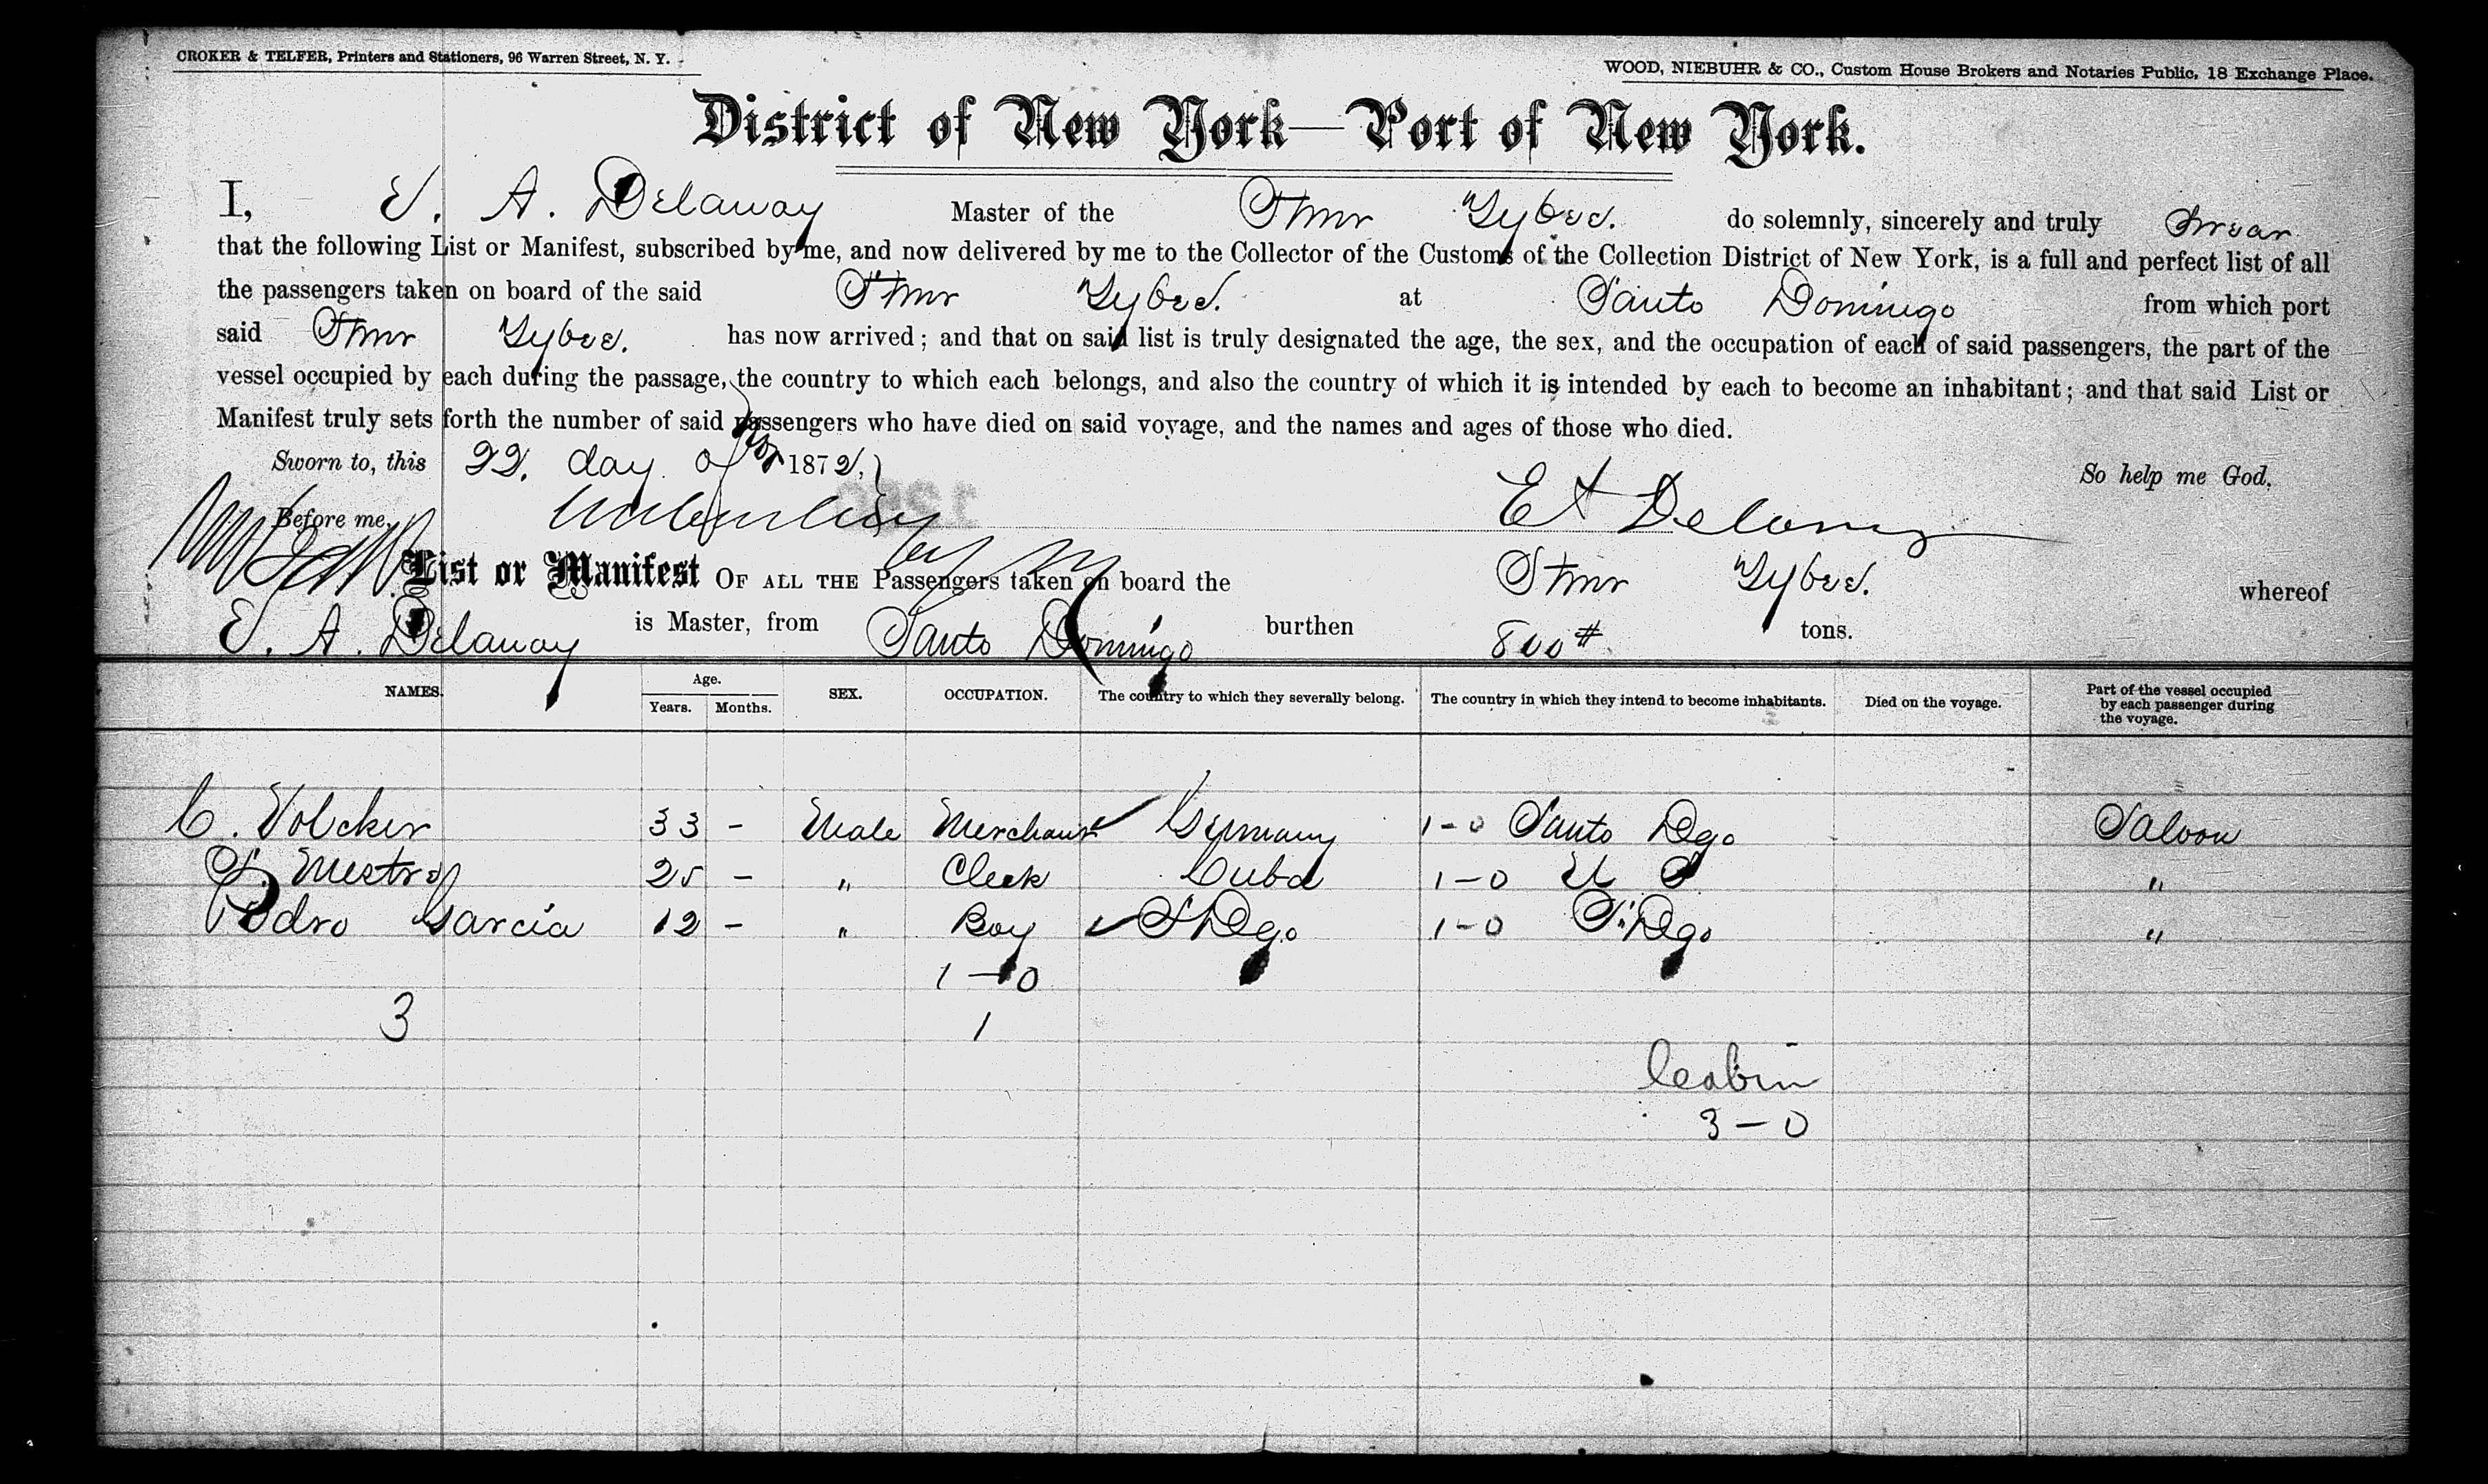 CROKER & TELFER, Printers and Stationers, 96 Warren Street, N. Y.
WOOD, NIEBUHR & CO., Custom House Brokers and Notaries Public, 18 Exchange Place.
District of New York—Port of New York.
I, E. A. Delanoy Master of the Stmr Tybee. do solemnly, sincerely and truly swear
that the following List or Manifest, subscribed by me, and now delivered by me to the Collector of the Customs of the Collection District of New York, is a full and perfect list of all
the passengers taken on board of the said Stmr Tybee. at Santo Domingo from which port
said Stmr Tybee. has now arrived; and that on said list is truly designated the age, the sex, and the occupation of each of said passengers, the part of the
vessel occupied by each during the passage, the country to which each belongs, and also the country of which it is intended by each to become an inhabitant; and that said List or
Manifest truly sets forth the number of said passengers who have died on said voyage, and the names and ages of those who died.
Sworn to, this 22. day of 1872. So help me God,
Before me, E A Delanoy
List or Manifest OF ALL THE Passengers taken on board the Stmr Tybee. whereof
E. A. Delanoy is Master, from Santo Domingo burthen 800 # tons.
NAMES. Age. Years. Months. SEX. OCCUPATION. The country to which they severally belong. The country in which they intend to become inhabitants. Died on the voyage. Part of the vessel occupied by each passenger during the voyage.
C. Volcker 33 - Male Merchant Germany 1-0 Santo Dgo Saloon
Mestre 25 - " Clerk Cuba 1-0 U S "
Pedro Garcia 12 - " Boy S Dgo 1-0 S. Dgo "
1-0
3 1
Cabin
3-0